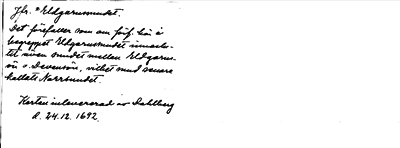 Jfr. *Eldgarnsundet.
Det förefaller som om förf. här i
begreppet Eldgarnsundet innefat-
tat även sundet mellan Eldgarns-
ön o. Dävensö, vilket sund senare
kallats Närrsundet.
Kartan inlevererad av Dahlberg
d. 24.12.1692.